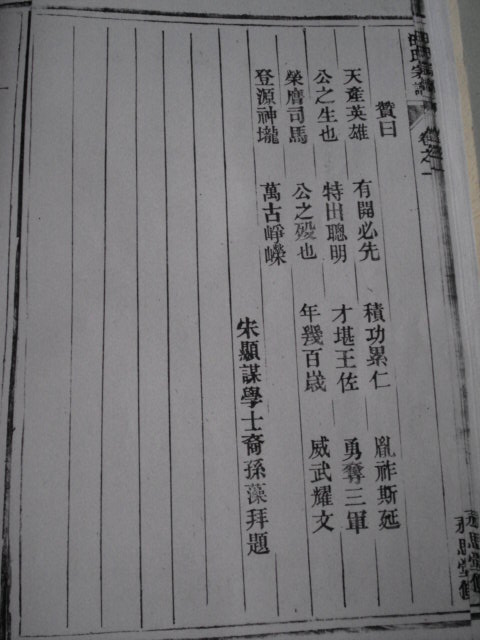 氏宗譜 卷之一
思堂
贊曰
天產英雄 有開必先 積功累仁 胤祚斯延
公之生也 特出聰明 才堪王佐 勇奪三軍
榮膺司馬 公之歿也 年幾百歲 威武耀文
登源神壠 萬古崢嶸
宋顯謀學士裔孫藻拜題